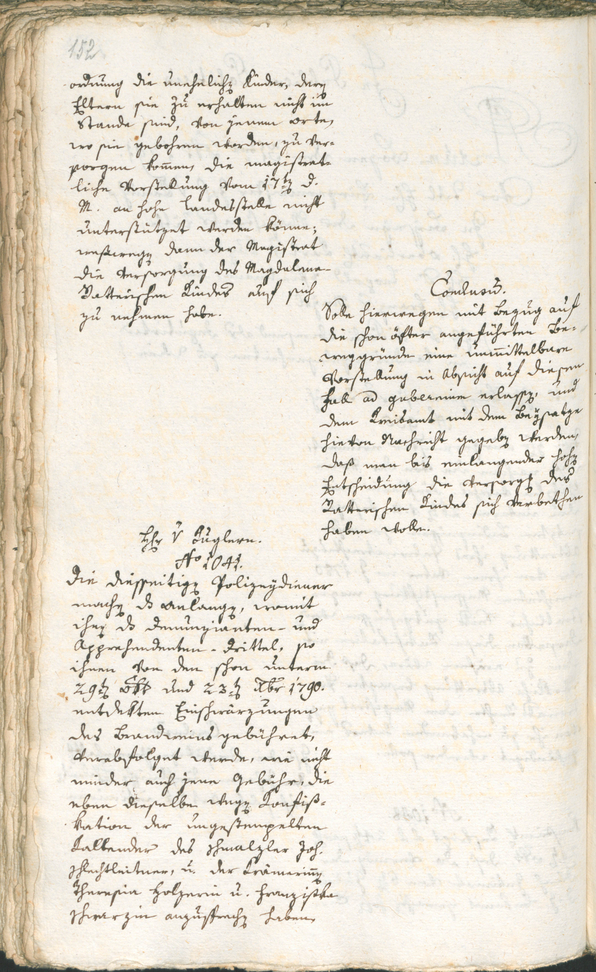 152.
ordnung die unehelichen Kinder, deren
Eltern sie zu erhalten nicht im
Stande sind, von jenem Orte,
wo sie gebohren worden, zu ver-
sorgen kommen, die magistrat-
liche Vorstellung vom 17ten d.
M. an hohe Landesstelle nicht
unterstützet werden könne;
weßwegen dann der Magistrat
die Versorgung des Magdalena
Natterischen Kindes auf sich
zu nehmen habe.
Conclusum.
Solle hierwegen mit Bezug auf
die schon öfter angeführten Be-
weggründe eine unmittelbare
Vorstellung in Absicht auf diesen
Fall ad gubernium erlassen, und
dem Kreisamt mit dem Beysatze
hievon Nachricht gegeben werden,
daß man bis einlangender hohen
Entscheidung die Versorgung des
Natterischen Kindes sich verbethen
haben wolle.
Hr v
No 1041.
Die diesseitigen Polizeydiener
machen das Anlangen, womit
ihnen das Denunzianten- und
Apprehendenten-Drittel, so
ihnen von den schon unterm
29ten 8br und 23ten Xbr 1790.
entdekten Einschwärzungen
des Brandweins gebühret,
verabfolget werde, wie nicht
minder auch jene Gebühr, die
eben dieselbe wegen Konfis-
kation der ungestempelten
Kallender des Schmalzler Joh.
Schlechtleitner, u. der Krämerinn
Theresia Holzerin u. Franziska
Schwarzin anzusprechen haben.